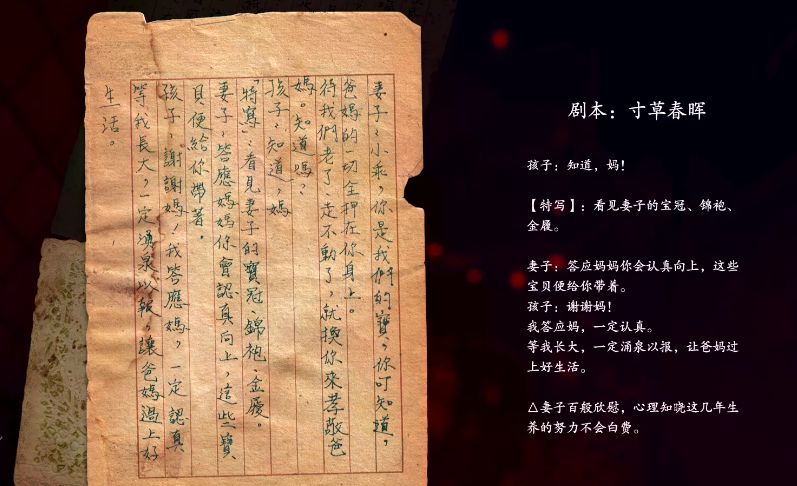 妻子：小乖，你是我們的寶，你可知道，
爸媽的一切全押在你身上。
待我們老了、走不動了，就換你來孝敬爸
媽。知道嗎？
孩子：知道，媽
「特寫」：看見妻子的寶冠、錦袍、金履。
妻子：答應媽媽你會認真向上，這些寶
貝便給你帶著。
孩子：謝謝媽！我答應媽，一定認真
等我長大，一定湧泉以報，讓爸媽過上好
生活。
剧本：寸草春晖
孩子：知道，妈！
【特写】：看见妻子的宝冠、锦袍、
金履。
妻子：答应妈妈你会认真向上，这些
宝贝便给你带着。
孩子：谢谢妈！
我答应妈，一定认真。
等我长大，一定涌泉以报，让爸妈过
上好生活。
△妻子百般欣慰，心理知晓这几年生
养的努力不会白费。